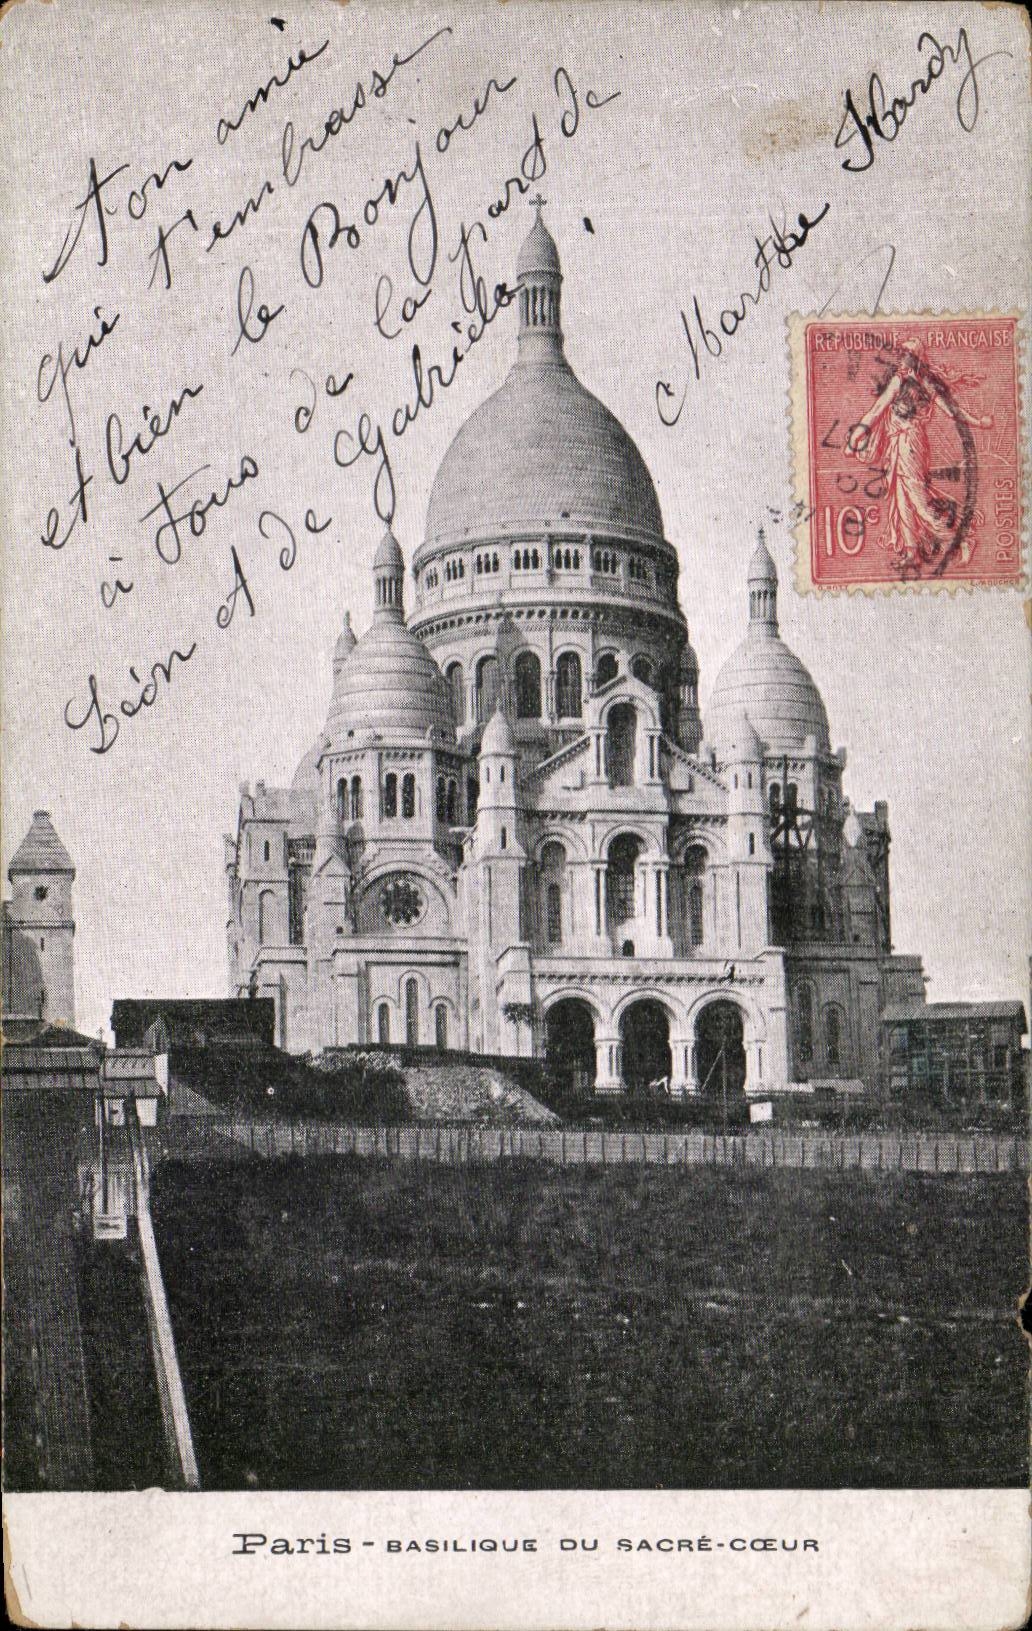 Ton amie
qui t'embrasse
et bien le Bonjour
à tous de la part de
Léon et de Gabriele.
Marthe Hardy
REPUBLIQUE FRANÇAISE
10c
POSTES
07
Paris - BASILIQUE DU SACRÉ-CŒUR